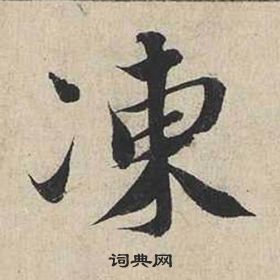 凍
词典网